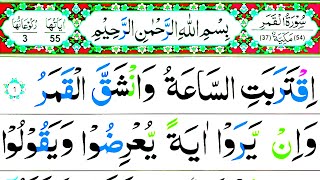 سُوْرَةُ الْقَمَرِ
(54) مَكِّيَّةٌ (37)
بِسْمِ اللّٰهِ الرَّحْمٰنِ الرَّحِيْمِ
اٰيَاتُهَا 55
رُكُوْعَاتُهَا 3
اِقْتَرَبَتِ السَّاعَةُ وَانْشَقَّ الْقَمَرُ ١
وَاِنْ يَّرَوْا اٰيَةً يُّعْرِضُوْا وَيَقُوْلُوْا